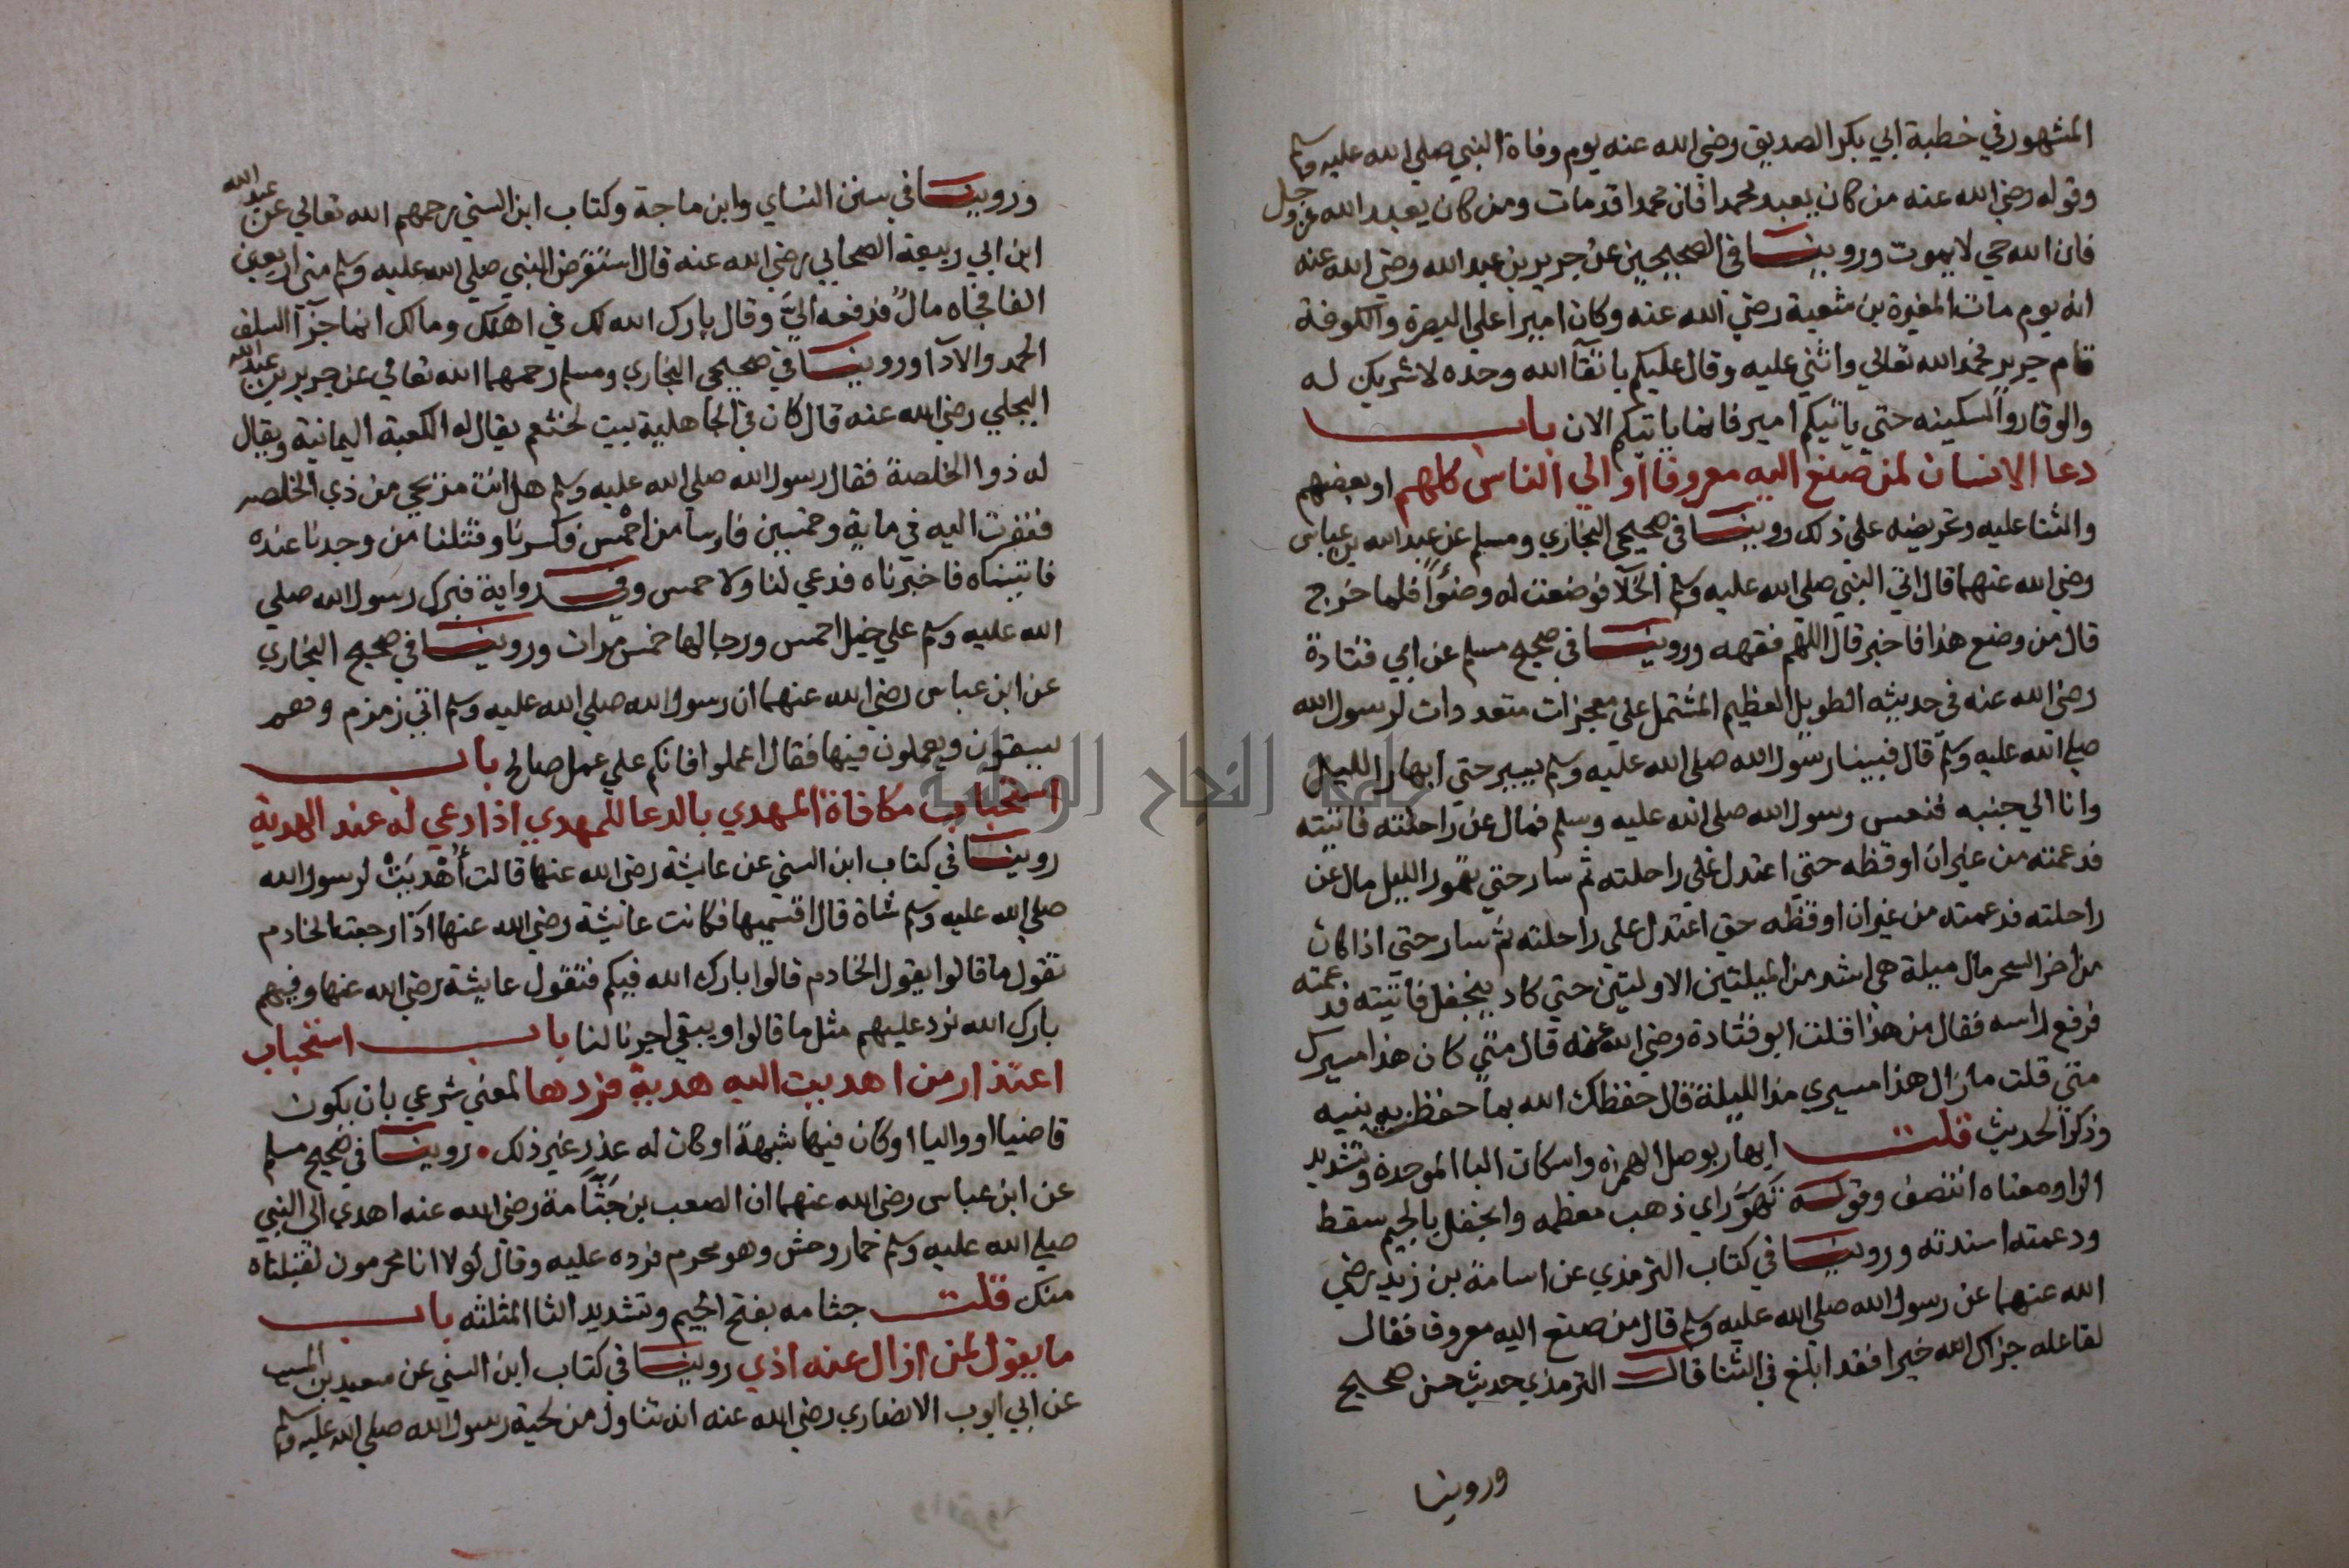 المشهور في خطبة ابي بكر الصديق رضي الله عنه يوم وفاة النبي صلي الله عليه وسلم
وقوله رضي الله عنه من كان يعبد محمدا فان محمدا قد مات ومن كان يعبد الله عز وجل
فان الله حي لا يموت وروينا في الصحيحين عن جرير بن عبد الله رضي الله عنه
انه يوم مات المغيرة بن شعبة رضي الله عنه وكان اميرا علي البصرة والكوفة
قام جرير فحمد الله تعالي واثني عليه وقال عليكم باتقآ الله وحده لا شريك له
والوقار والسكينه حتي ياتيكم امير فانما ياتيكم الان باب
دعا الانسان لمن صنع اليه معروفا او الي الناس كلهم او بعضهم
والثنا عليه وتحريضه علي ذلك روينا في صحيحي البخاري ومسلم عن عبد الله بن عباس
رضي الله عنهما قال اتي النبي صلي الله عليه وسلم الخلآ فوضعت له وضوًا فلما خرج
قال من وضع هذا فاخبر قال اللهم فقهه وروينا في صحيح مسلم عن ابي قتادة
رضي الله عنه في حديثه الطويل العظيم المشتمل علي معجزات متعددات لرسول الله
صلي الله عليه وسلم قال فبينا رسول الله صلي الله عليه وسلم يسير حتي ابهار الليل
وانا الي جنبه فنعس رسول الله صلي الله عليه وسلم فمال عن راحلته فاتيته
فدعمته من غير ان اوقظه حتي اعتدل علي راحلته ثم سار حتي تهور الليل مال عن
راحلته فدعمته من غير ان اوقظه حتي اعتدل علي راحلته ثم سار حتي اذا كان
من اخر السحر مال ميلة هي اشد من الميلتين الاولتين حتي كاد ينجفل فاتيته فدعمته
فرفع راسه فقال من هذا قلت ابو قتادة رضي الله عنه قال متي كان هذا مسيرك
متي قلت مازال هذا مسيري مذ الليلة قال حفظك الله بما حفظ به نبيه
وذكر الحديث قلت ابهار بوصل الهمزه واسكان البا الموحدة وتشديد
الرا ومعناه انتصف وقوله تَهَوَّر اي ذهب معظمه وانجفل بالجيم سقط
ودعمته اسندته وروينا في كتاب الترمذي عن اسامة بن زيد رضي
الله عنهما عن رسول الله صلي الله عليه وسلم قال من صنع اليه معروفا فقال
لفاعله جزاك الله خيرا فقد ابلغ في الثنا قال الترمذي حديث حسن صحيح
وروينا
وروينا في سنن النساي وابن ماجة وكتاب ابن السني رحمهم الله تعالي عن عبد الله
ابن ابي ربيعة الصحابي رضي الله عنه قال استقرض النبي صلي الله عليه وسلم مني اربعين
الفا فجاه مالٌ فدفعه اليَّ وقال بارك الله لك في اهلك ومالك انما جزآ السلف
الحمد والادآ وروينا في صحيحي البخاري ومسلم رحمهما الله تعالي عن جرير بن عبد الله
البجلي رضي الله عنه قال كان في الجاهلية بيت لخثعم يقال له الكعبة اليمانية ويقال
له ذوا الخلصة فقال رسول الله صلي الله عليه وسلم هل انت مريحي من ذي الخلصه
فنفرت اليه في ماية وخمسين فارسا من احْمس فكسرنا وقتلنا من وجدنا عنده
فاتيناه فاخبرناه فدعي لنا ولاحمس وفي رواية فبرك رسول الله صلي
الله عليه وسلم علي خيل احمس ورجالها خمس مرات وروينا في صحيح البخاري
عن ابن عباس رضي الله عنهما ان رسول الله صلي الله عليه وسلم اتي زمزم وهم
يسقون ويعملون فيها فقال اعملوا فانكم علي عمل صالح باب
استحباب مكافاة المهدي بالدعا للمهدي اذا دعي له عند الهدية
روينا في كتاب ابن السني عن عايشة رضي الله عنها قالت أُهْدِيَتْ لرسول الله
صلي الله عليه وسلم شاة قال اقسميها فكانت عايشة رضي الله عنها اذا رجعت الخادم
تقول ما قالوا يقول الخادم قالوا بارك الله فيكم فتقول عايشة رضي الله عنها وفيهم
بارك الله نرد عليهم مثل ما قالوا ويبقي اجرنا لنا باب استحباب
اعتذار من اهديت اليه هدية فردها لمعني شرعي بان يكون
قاضيا او واليا او كان فيها شبهة او كان له عذر غير ذلك • روينا في صحيح مسلم
عن ابن عباس رضي الله عنهما ان الصعب بن جَثَّامة رضي الله عنه اهدي الي النبي
صلي الله عليه وسلم حمار وحش وهو محرم فرده عليه وقال لولا انا محرمون لقبلناه
منك قلت جثامه بفتح الجيم وتشديد الثا المثلثه باب
ما يقول لمن ازال عنه اذي روينا في كتاب ابن السني عن سعيد بن المسيب
عن ابي ايوب الانصاري رضي الله عنه انه تناول من لحية رسول الله صلي الله عليه وسلم
جامعة النجاح الوطنية